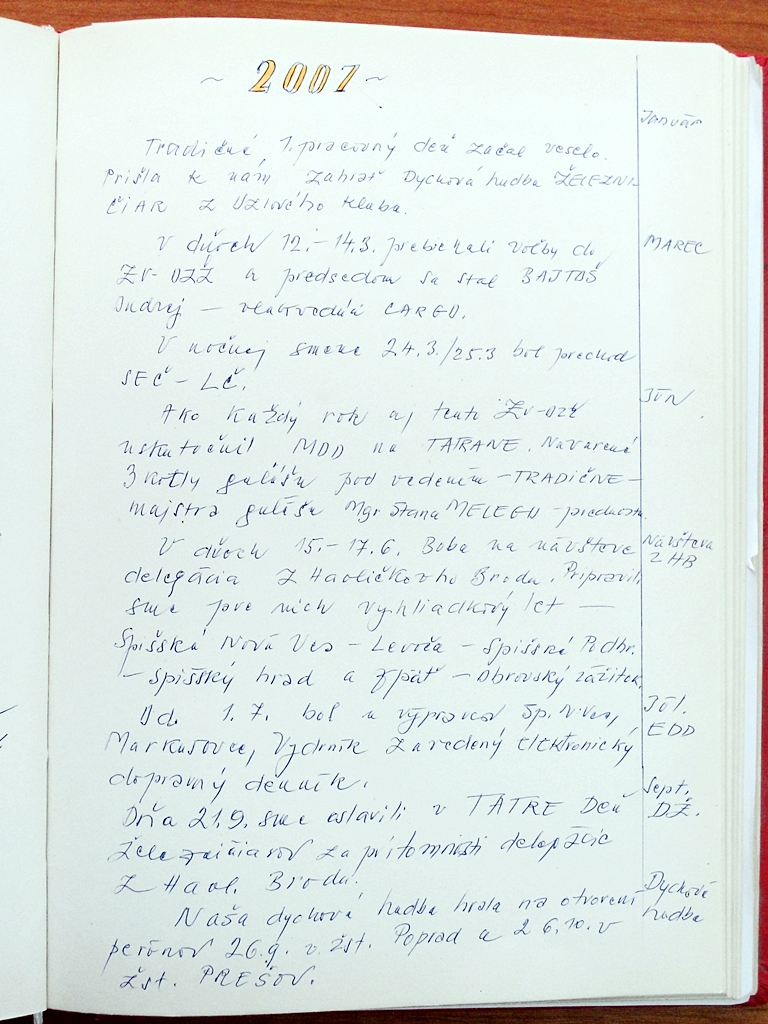 ~ 2007 ~
Január
Tradične 1. pracovný deň začal veselo.
Prišla k nám zahrať Dychová hudba ŽELEZNI-
ČIAR z Uzlového klubu.
V dňoch 12.-14.3. prebehali voľby do
MAREC
ZV-OZŽ a predsedom sa stal BAJTOŠ
Ondrej – vlakvedúci CARGO.
V nočnej smene 24.3./25.3 bol prechod
SEČ - LČ.
JÚN
Ako každý rok aj tento ZV-OZŽ
uskutočnil MDD na TATRANE. Navarené
3 kotly gulášu pod vedením - TRADIČNE -
majstra gulášu Mgr. Štana MELEGU - prednostu.
V dňoch 15.-17.6. Bola na návšteve
Návšteva
z HB
delegácia z Havlíčkovho Brodu. Pripravili
sme pre nich vyhliadkový let –
Spišská Nová Ves - Levoča - Spišské Podhr.
- Spišský hrad a späť - Obrovský zážitok.
Od 1.7. bol u výpravcov Sp.N.Ves,
Júl.
EDD
Markušovce, Vydrník zavedený Elektronický
dopravný denník.
Sept.
DŽ.
Dňa 21.9. sme oslavili v TATRE Deň
Železničiarov za prítomnosti delegácie
z Havl. Brodu.
Dychová
hudba
Naša dychová hudba hrala na otvorení
perónov 26.9. v žst. Poprad a 26.10. v
žst. PREŠOV.